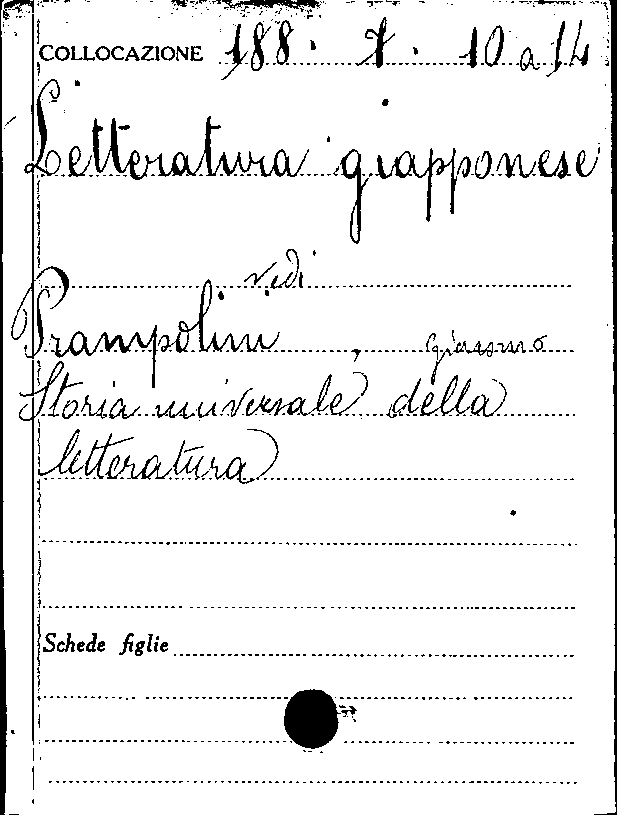 COLLOCAZIONE 188. 7. 10 a 14
Letteratura giapponese
vedi
Prampolini, giacomo
Storia universale della
letteratura
Schede figlie